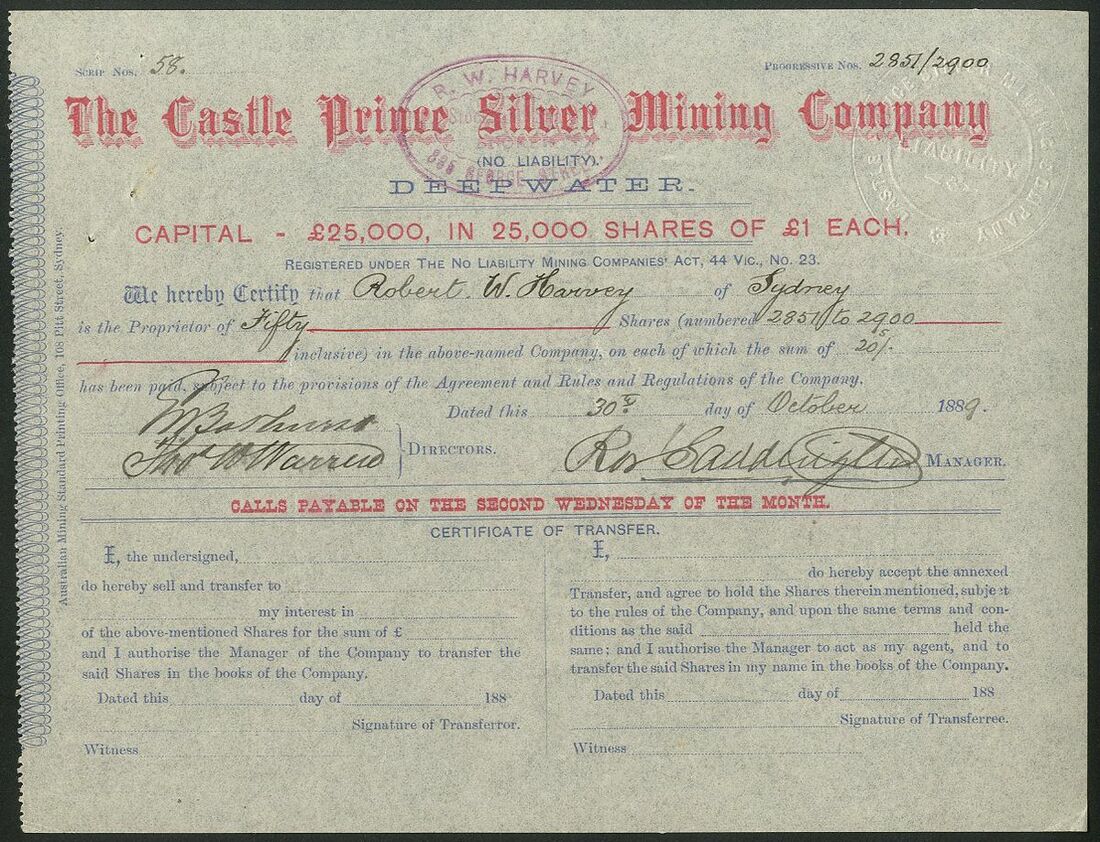 SCRIP NOS. 58. PROGRESSIVE NOS. 2851/2900
R. W. HARVEY
The Castle Prince Silver Mining Company
(NO LIABILITY).
GEORGE STREET
DEEPWATER.
LIABILITY
CAPITAL - £25,000, IN 25,000 SHARES OF £1 EACH.
REGISTERED UNDER THE NO LIABILITY MINING COMPANIES' ACT, 44 VIC., NO. 23.
We hereby Certify that Robert. W. Harvey of Sydney
is the Proprietor of Fifty Shares (numbered 2851 to 2900
inclusive) in the above-named Company, on each of which the sum of 20/-
has been paid, subject to the provisions of the Agreement and Rules and Regulations of the Company.
Dated this 30th day of October 1889.
Thos W Warren DIRECTORS. MANAGER.
CALLS PAYABLE ON THE SECOND WEDNESDAY OF THE MONTH.
CERTIFICATE OF TRANSFER.
I, the undersigned,
do hereby sell and transfer to
my interest in
of the above-mentioned Shares for the sum of £
and I authorise the Manager of the Company to transfer the
said Shares in the books of the Company.
Dated this day of 188
Signature of Transferror.
Witness
I,
do hereby accept the annexed
Transfer, and agree to hold the Shares therein mentioned, subject
to the rules of the Company, and upon the same terms and con-
ditions as the said held the
same; and I authorise the Manager to act as my agent, and to
transfer the said Shares in my name in the books of the Company.
Dated this day of 188
Signature of Transferree.
Witness
Australian Mining Standard Printing Office, 108 Pitt Street, Sydney.